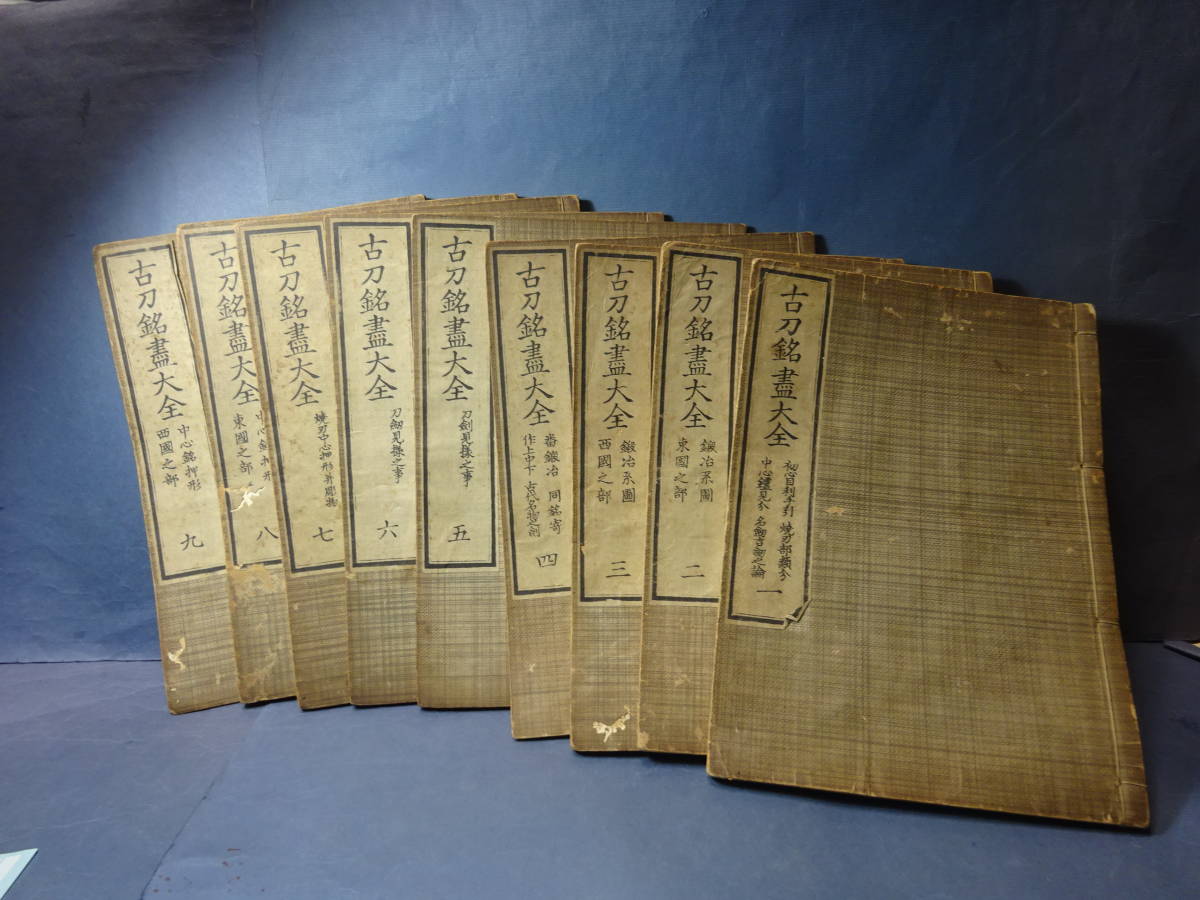 古刀銘盡大全
初心目利手引 焼刃部類分
中心鑢見分 名劔吉劔之論
一
古刀銘盡大全
鍛冶系圖
東國之部
二
古刀銘盡大全
鍛冶系圖
西國之部
三
古刀銘盡大全
番鍛冶 同銘寄
作上中下 古代名物之剣
四
古刀銘盡大全
刀劍見様之事
五
古刀銘盡大全
刀劔見様之事
六
古刀銘盡大全
焼刃中心押形并彫物
七
古刀銘盡大全
中心銘押形
東國之部
八
古刀銘盡大全
中心銘押形
西國之部
九